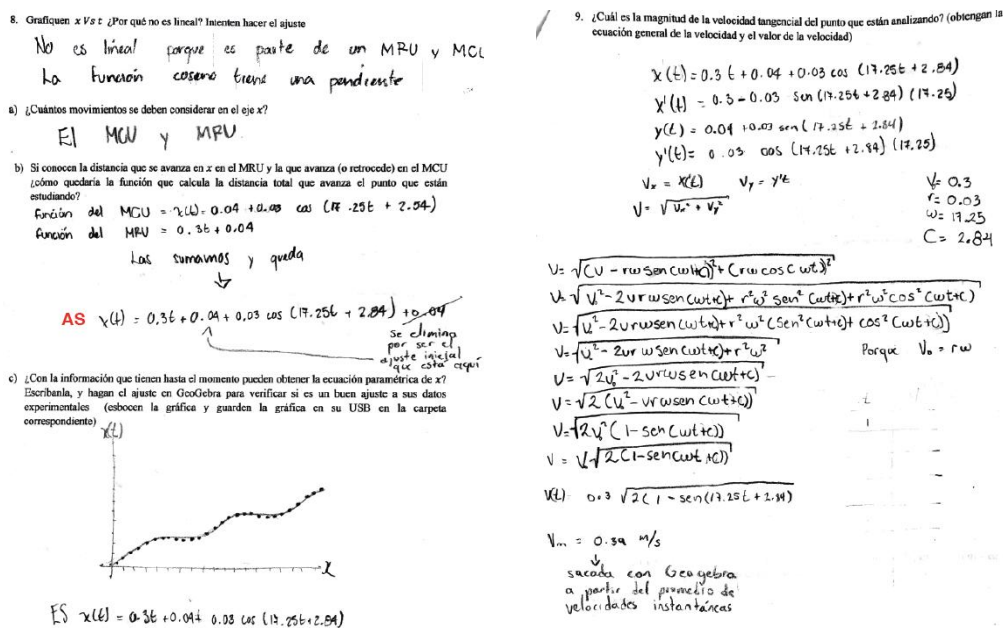 8. Grafiquen x Vs t ¿Por qué no es lineal? Intenten hacer el ajuste
No es lineal porque es parte de un MRU y MCU
La función coseno tiene una pendiente
a) ¿Cuántos movimientos se deben considerar en el eje x?
El MCU y MRU
b) Si conocen la distancia que se avanza en x en el MRU y la que avanza (o retrocede) en el MCU
¿cómo quedaría la función que calcula la distancia total que avanza el punto que están
estudiando?
función del MCU = x(t) = 0.04 + 0.03 cos (17.25t + 2.54)
función del MRU = 0.3t + 0.04
Las sumamos y queda
AS x(t) = 0,3t + 0.04 + 0,03 cos (17.25t + 2.84) + 0,04
se elimina
por ser el
ajuste inicial
que está aquí
c) ¿Con la información que tienen hasta el momento pueden obtener la ecuación paramétrica de x?
Escríbanla, y hagan el ajuste en GeoGebra para verificar si es un buen ajuste a sus datos
experimentales (esbocen la gráfica y guarden la gráfica en su USB en la carpeta
correspondiente)
x(t)
x
ES x(t) = 0.3t + 0.04 + 0.03 cos (17.25t + 2.84)
9. ¿Cuál es la magnitud de la velocidad tangencial del punto que están analizando? (obtengan la
ecuación general de la velocidad y el valor de la velocidad)
x(t) = 0.3t + 0.04 + 0.03 cos (17.25t + 2.84)
x'(t) = 0.3 - 0.03 sen (17.25t + 2.84) (17.25)
y(t) = 0.04 + 0.03 sen (17.25t + 2.84)
y'(t) = 0.03 cos (17.25t + 2.84) (17.25)
Vx = x'(t) Vy = y't
V = √Vx² + Vy²
V = 0.3
r = 0.03
ω = 17.25
C = 2.84
V = √(V - rω sen(ωt+c))² + (rω cos(ωt)²
V = √V² - 2vrω sen(ωt+c) + r²ω² sen²(ωt+c) + r²ω² cos²(ωt+c)
V = √V² - 2vrω sen(ωt+c) + r²ω² (sen²(ωt+c) + cos²(ωt+c))
V = √V² - 2vrω sen(ωt+c) + r²ω²
Porque V₀ = rω
V = √2V₀² - 2vrω sen(ωt+c)
V = √2(V₀² - vrω sen(ωt+c))
V = √2V₀²(1 - sen(ωt+c))
V = V√2(1 - sen(ωt+c))
V(t) 0.3 √2(1 - sen(17.25t + 2.84)
Vm = 0.39 m/s
sacada con Geogebra
a partir del promedio de
velocidades instantáneas